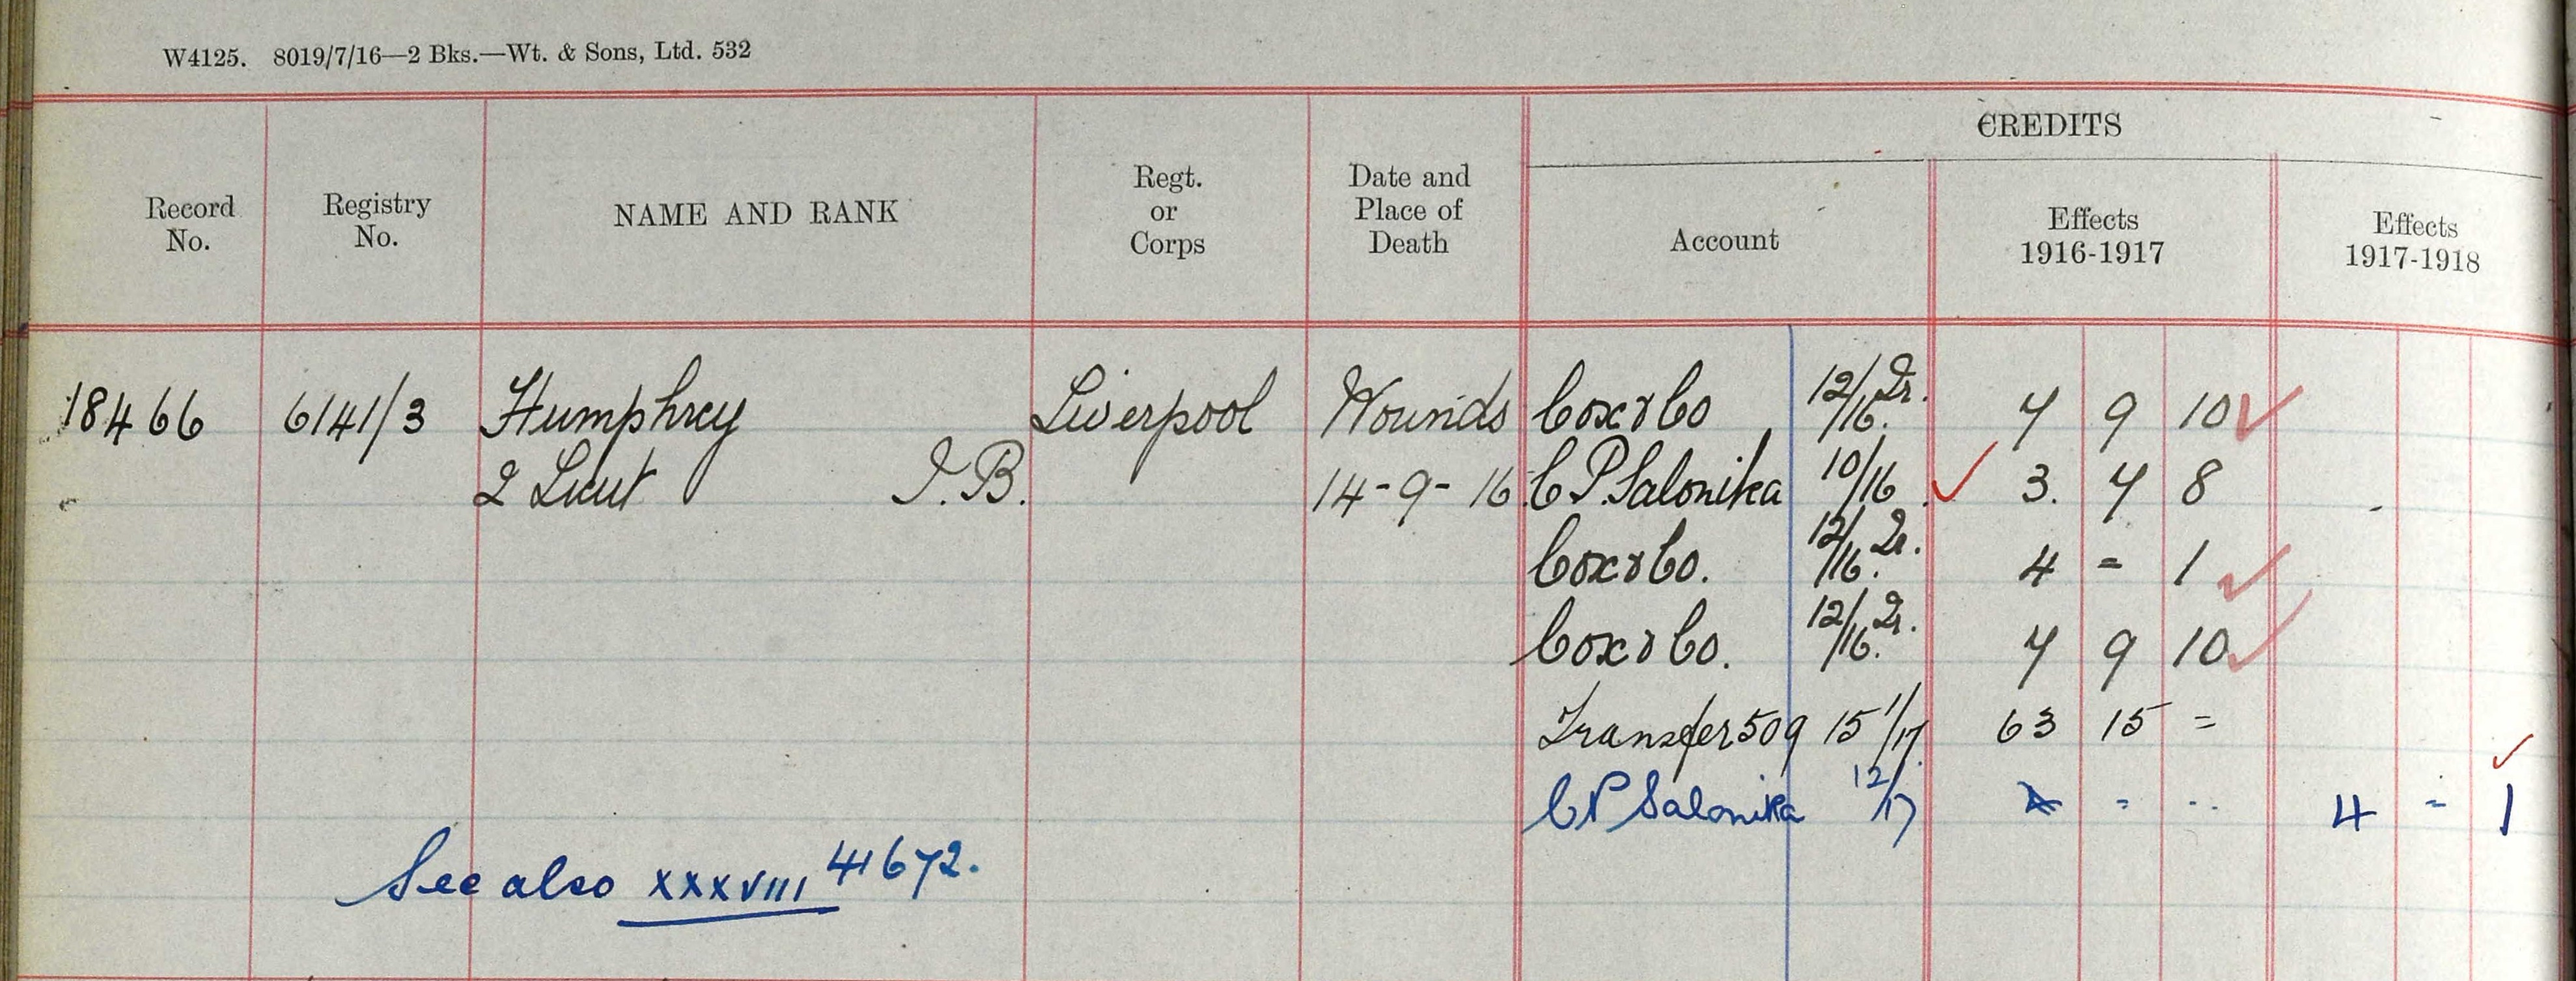 W4125. 8019/7/16—2 Bks.—Wt. & Sons, Ltd. 532
CREDITS
Record No.
Registry No.
NAME AND RANK
Regt. or Corps
Date and Place of Death
Account
Effects 1916-1917
Effects 1917-1918
18466 6141/3 Humphrey Liverpool Wounds Cox & Co 12/16 Dr. 7 9 10
2 Lieut I. B. 14-9-16 C P Salonika 10/16 3. 7 8
Cox & Co. 12/16. Dr. 4 = 1
Cox & Co. 12/16. Dr. 7 9 10
Transfer 509 15 1/17. 63 15 =
C P Salonika 12/17 4 = 1
See also XXXVIII 41672.